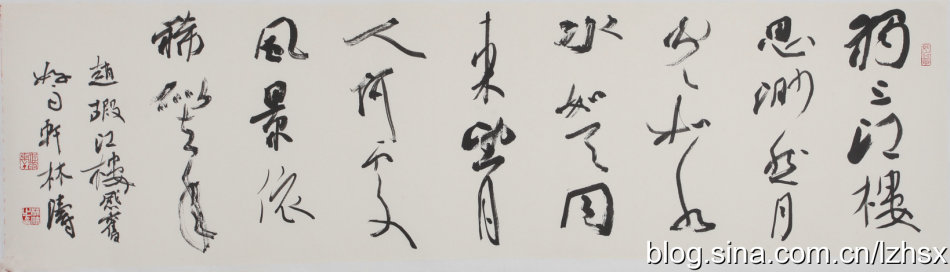 獨上江樓
思渺然月
光如水
水如天同
來望月
人何處
風景依
稀似去年
趙嘏江樓感舊
軒林濤
blog.sina.com.cn/lzhsx